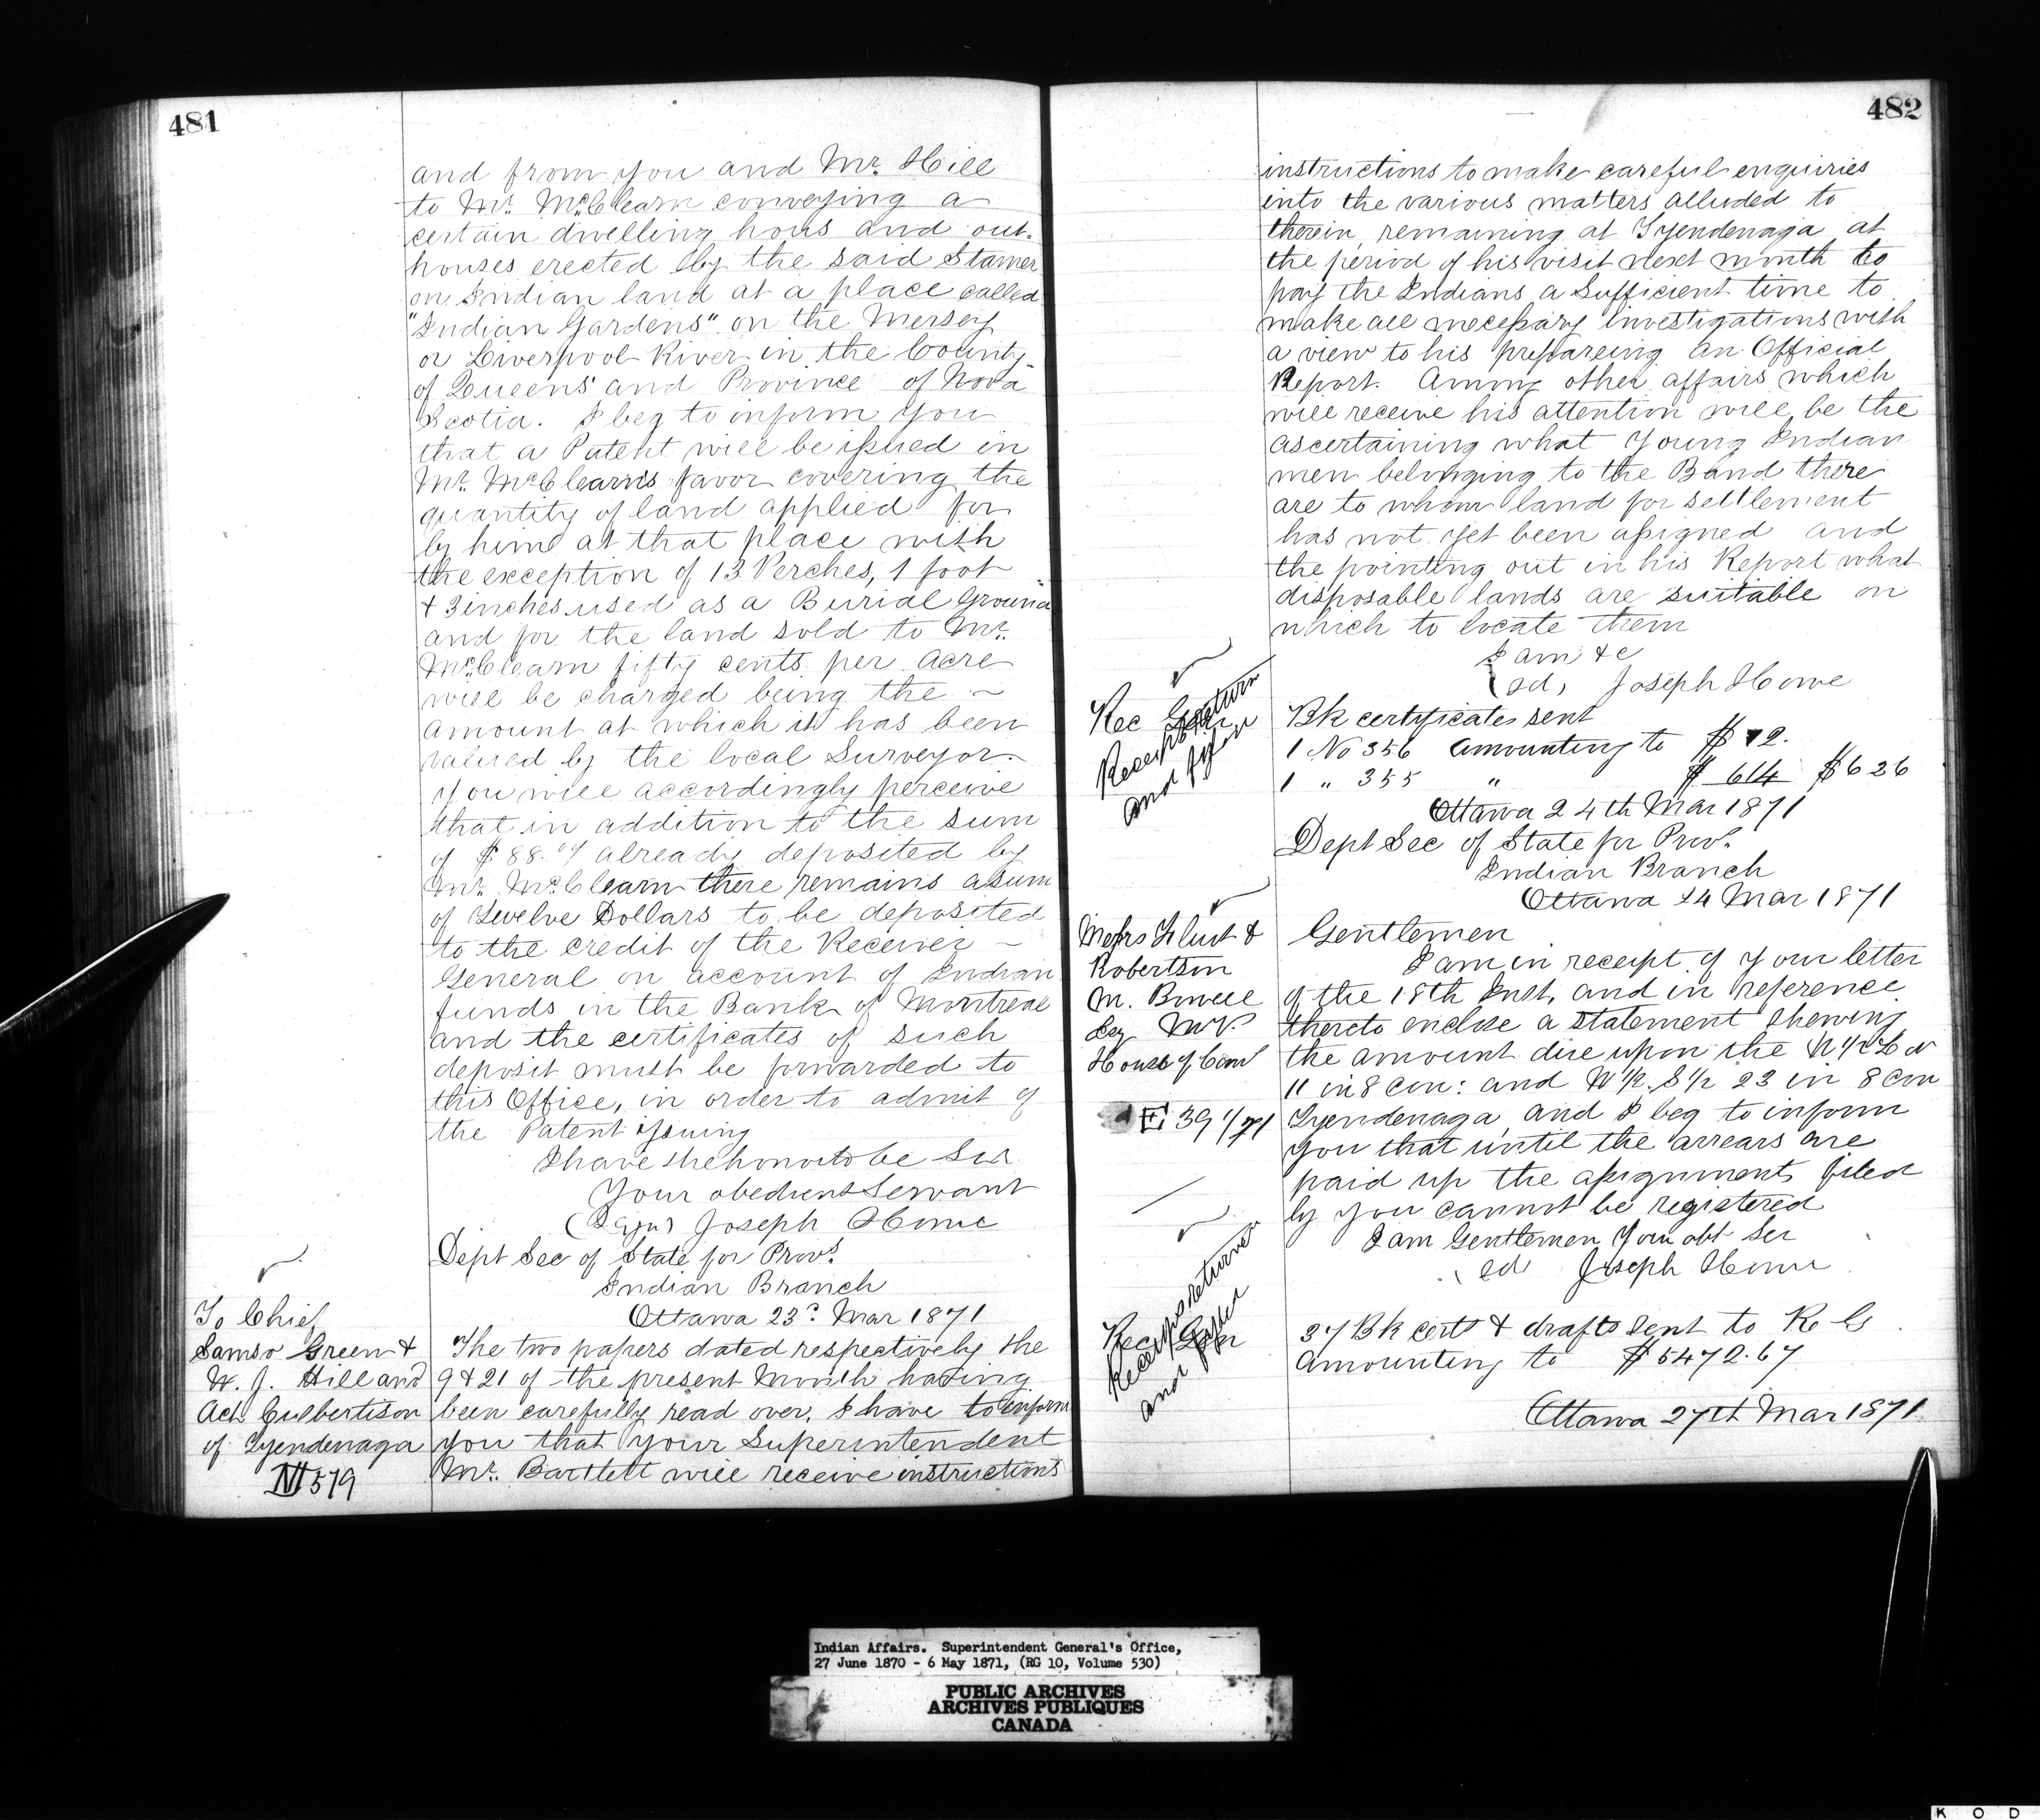 481
and from you and Mr. Hill
to Mr. McClearn conveying a
certain dwelling hous and out-
houses erected by the said Stamer
on Indian land at a place called
"Indian Gardens" on the Mersey
or Liverpool River in the County
of Queens and Province of Nova
Scotia. I beg to inform you
that a Patent will be issued in
Mr. McClearn's favor covering the
quantity of land applied for
by him at that place with
the exception of 13 Perches, 1 foot
& 3 inches used as a Burial Ground
and for the land sold to Mr.
McClearn fifty cents per acre
will be charged being the ~
amount at which it has been
valued by the local Surveyor.
You will accordingly perceive
that in addition to the sum
of $88.07 already deposited by
Mr. McClearn there remains a sum
of Twelve Dollars to be deposited
to the credit of the Receiver ~
General on account of Indian
funds in the Bank of Montreal
and the certificates of such
deposit must be forwarded to
this Office, in order to admit of
the Patent issuing
I have the honor to be Sir
Your obedient Servant
(Sgn) Joseph Howe
Dept Sec of State for Provs.
Indian Branch
Ottawa 23d Mar 1871
To Chief
Samsn Green &
W. J. Hill and
Ach Culbertson
of Tyendenaga
579
The two papers dated respectively the
9 & 21 of the present Month having
been carefully read over, I have to inform
you that your Superintendent
Mr. Bartlett will receive instructions
482
instructions to make careful enquiries
into the various matters alluded to
therein, remaining at Tyendenaga at
the period of his visit next month to
pay the Indians a Sufficient time to
make all necessary investigations with
a view to his prepareing an Official
Report. Among other affairs which
will receive his attention will be the
ascertaining what Young Indian
men belonging to the Band there
are to whom land for settlement
has not yet been assigned and
the pointing out in his Report what
disposable lands are suitable on
which to locate them
I am &c
(sd) Joseph Howe
Rec Gen
Receipts return
and fyled
Bk certificates sent
1 No 356 amounting to $12.
1 " 355 " $614 $626
Ottawa 24th Mar 1871
Dept Sec of State for Provs.
Indian Branch
Ottawa 24 Mar 1871
Messrs Flint &
Robertson
M. Bowell
Esq M.P.
House of Com
E 39 1/71
Gentlemen
I am in receipt of your letter
of the 18th Inst, and in reference
thereto enclose a statement shewing
the amount due upon the N 1/2 Lot
11 in 8 Con: and W 1/2 S 1/2 23 in 8 Con
Tyendenaga, and I beg to inform
you that until the arrears are
paid up the assignments filed
by you cannot be registered
I am Gentlemen Your obt Ser
sd Joseph Howe
Rec Gen
Receipts returned
and fyled
37 Bk certs & drafts sent to R G
amounting to $5472.67
Ottawa 27th Mar 1871
Indian Affairs. Superintendent General's Office,
27 June 1870 - 6 May 1871, (RG 10, Volume 530)
PUBLIC ARCHIVES
ARCHIVES PUBLIQUES
CANADA
K O D